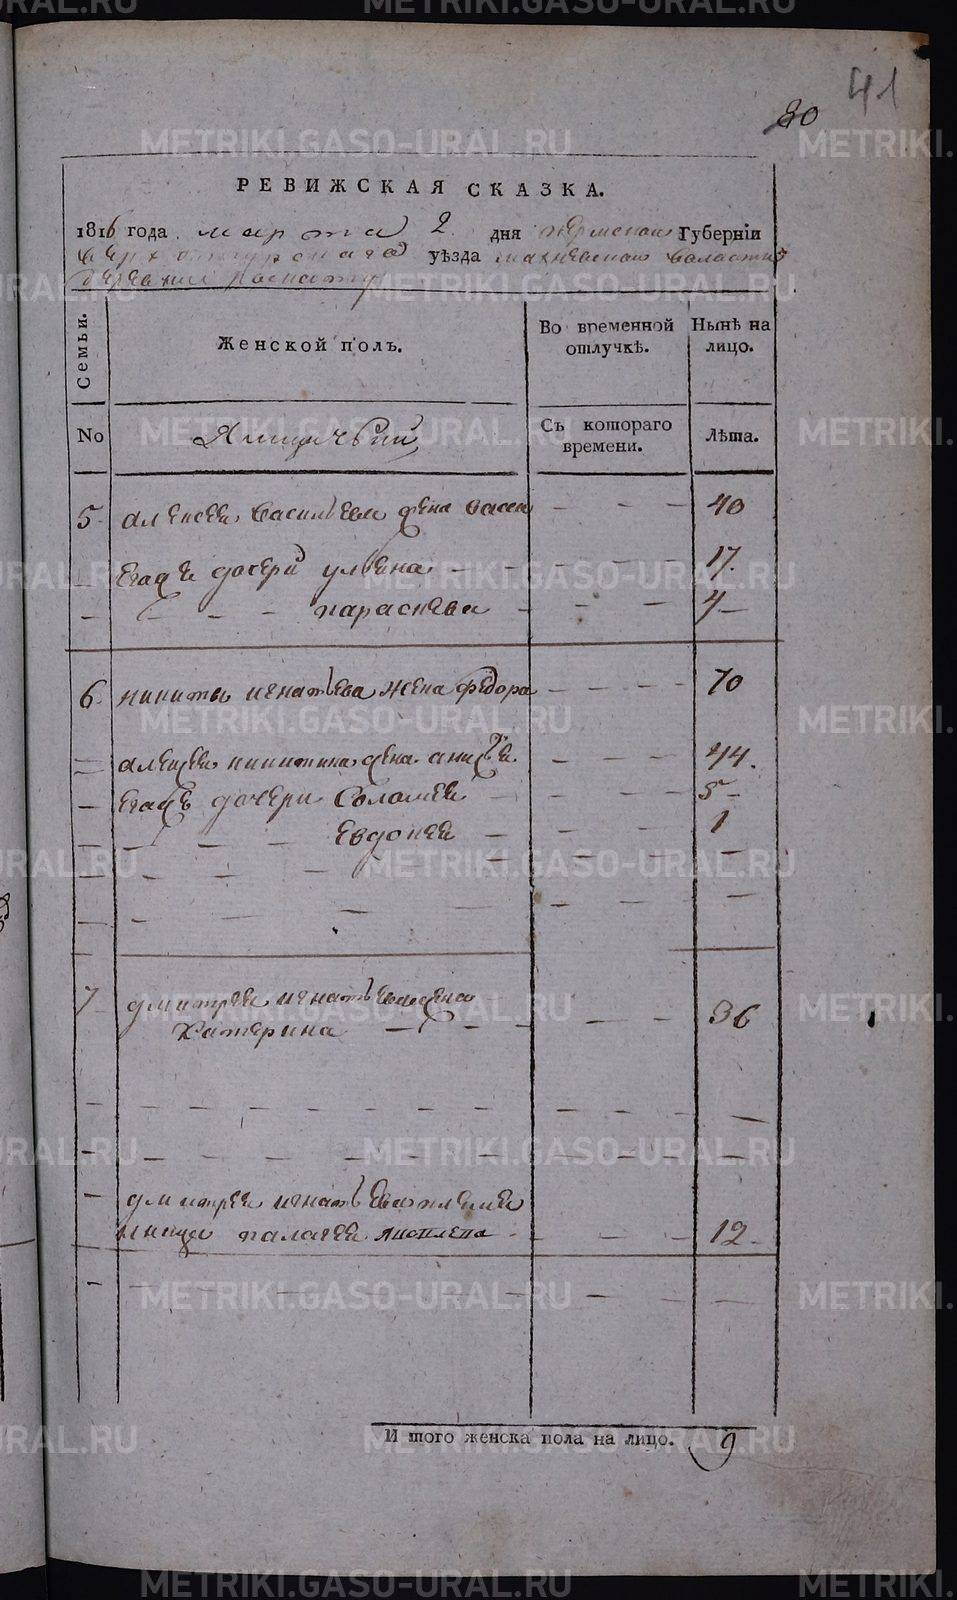 41
80
РЕВИЖСКАЯ СКАЗКА.
1816 года марта 2 дня пермской Губерніи
верхотурскаго уѣзда махневской валасти
деревни
Семьи.
Женской полъ.
Во временной отлучкѣ.
Нынѣ на лицо.
No
Ямщичьи
Съ котораго времени.
Лѣта.
5 алексея васильева жена васса 40
егаже дочери ульяна 17.
параскева 4
6 никиты игнатьева жена федора 70
алексея никитина жена анисья 44.
егажъ дочери Соломея 5
Евдокея 1
7 дмитрея игнатьева жена
Катерина 36
дмитрея игнатьева племе
ница палагея 12
И того женска пола на лицо. 9
METRIKI.GASO-URAL.RU